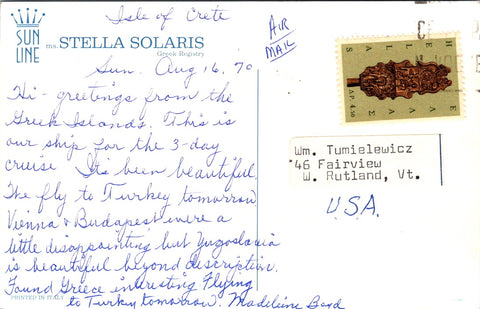 Isle of Crete
SUN
LINE
ms. STELLA SOLARIS
Greek Registry
Sun. Aug 16, 70
Hi - greetings from the
Greek Islands. This is
our ship for the 3-day
cruise. Its been beautiful.
We fly to Turkey tomorrow
Vienna & Budapest were a
little disappointing but Yugoslavia
is beautiful beyond description.
Found Greece interesting Flying
to Turkey tomorrow. Madeleine
PRINTED IN ITALY
AIR
MAIL
ΕΛΛΑΣ
HELLAS
ΔΡ. 4,50
Wm. Tumielewicz
46 Fairview
W. Rutland, Vt.
USA.